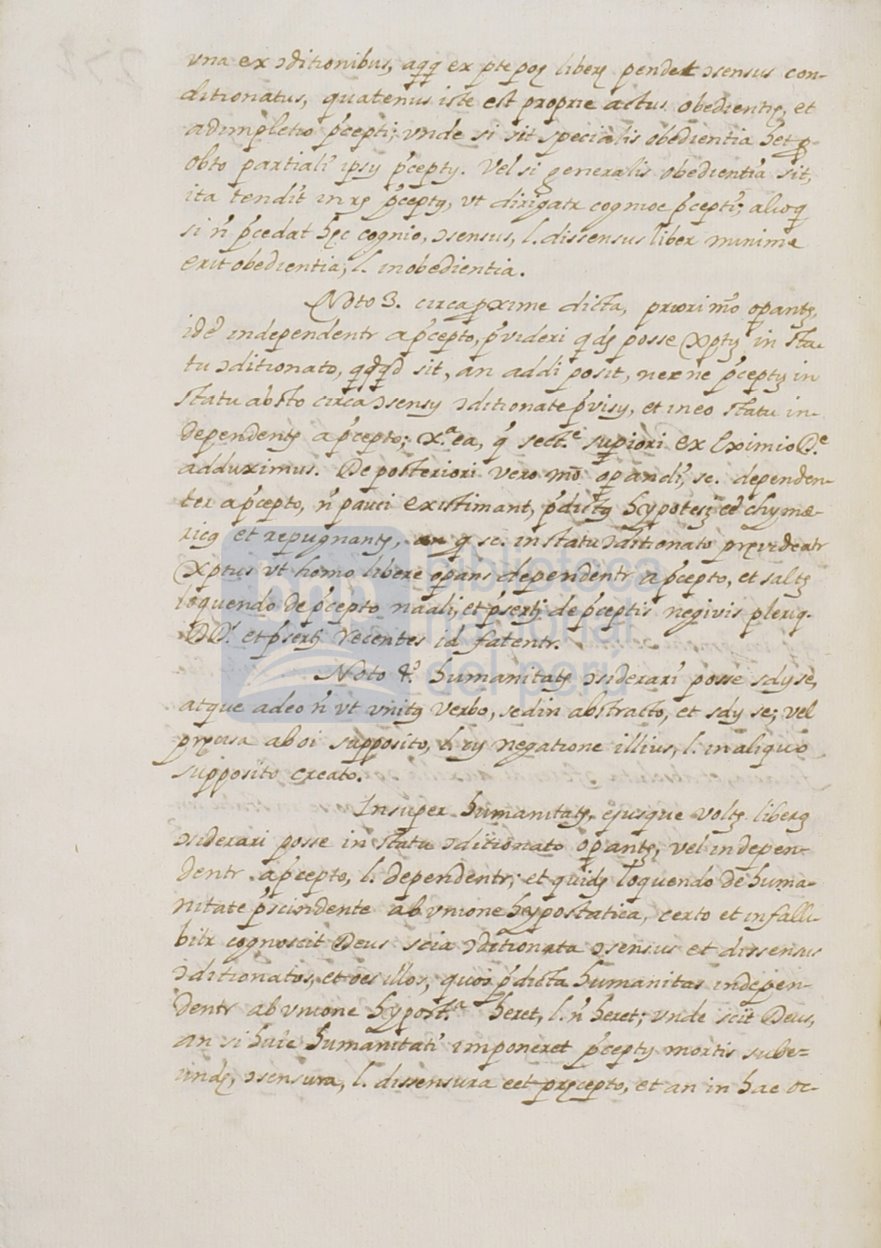 vna ex ɔditionibus, aqq̃ ex pte poę liberę pendet ɔsensus con-
ditionatus, quatenus iste est proprie actus obedientię, et
adimpletio p̃cepti; vnde si sit specialis obedientia het ꝓ
obto partiali ipsȝ p̃ceptȝ. Vel si generalis obedientia sit,
ita tendit in rȝ p̃ceptȝ, vt dirigatr cognioe p̃cepti; alioq̃
si ñ p̃cedat hęc cognio, ɔsensus, l. dissensus liber minime
erit obedientia, l. inobedientia.
Noto 3. circa proxime dicta, priori mõ opantȝ,
idẽ independentr a p̃cepto, p̃videri qdȝ posse Xptȝ in sta-
tu ɔditionato, qdqd sit, an addi posit, necne p̃ceptȝ in
statu absto circa ɔsensȝ ɔditionate p̃visȝ, et in eo statu in-
dependentȝ a p̃cepto; Xᵃ ea, q̃ sectᵉ supiori ex Eximio Dᵉ
adduximus. De posteriori vero mõ opandi, sc. dependen-
ter a p̃cepto, ñ pauci existimant, p̃dictȝ hypotesȝ eẽ chymę-
ricȝ et repugnantȝ, q̃ sc. in statu ɔditionato pręvideatr
Xptus vt homo libere opans dependentr a p̃cepto, et saltȝ
loquendo de p̃cepto naali, et p̃sertȝ de p̃ceptis negivis pleriq.
DD. et p̃sertȝ recentes id fatentr.
Noto 4º humanitatȝ ɔsiderari posse sdȝ se,
atque adeo ñ vt vnitȝ verbo, sed in abstracto, et sdȝ se; vel
pręcisa ab oi supposito, l. cȝ negatione illius, l. in aliquo
supposito creato.
Insuper humanitatȝ, ejusque voltȝ liberȝ
ɔsiderari posse in statu ɔditionato opantȝ, vel indepen-
dentr a p̃cepto, l. dependentr; et quidȝ loquendo de huma-
nitate p̃scindente ab vnione hypostatica, certo et infalli-
bilr cognoscit Deus scia ɔditionata ɔsensus et dissensus
ɔditionatos, et oes illos, quos p̃dicta humanitas indepen-
dentr ab vnione hypostᵃ heret, l. ñ heret; vnde scit Deus,
an si huic humanitati imponeret p̃ceptȝ mortis sube-
undę, ɔsensura, l. dissensura eet pręcepto, et an in hac oc-